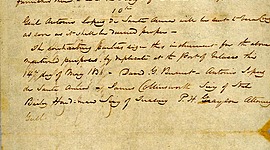 10th
Genl Antonio Lopez de Santa Anna will be sent to Veracruz
as soon as it shall be deemed proper —
The contracting parties sign this instrument for the above
mentioned purposes, by duplicate at the Port of Velasco this
14th day of May 1836 — David G Burnet — Antonio Lopez
de Santa Anna — James Collinsworth Secy of State
Bailey Hardiman Secy of Treasury P. H. Grayson Attorney
Genl